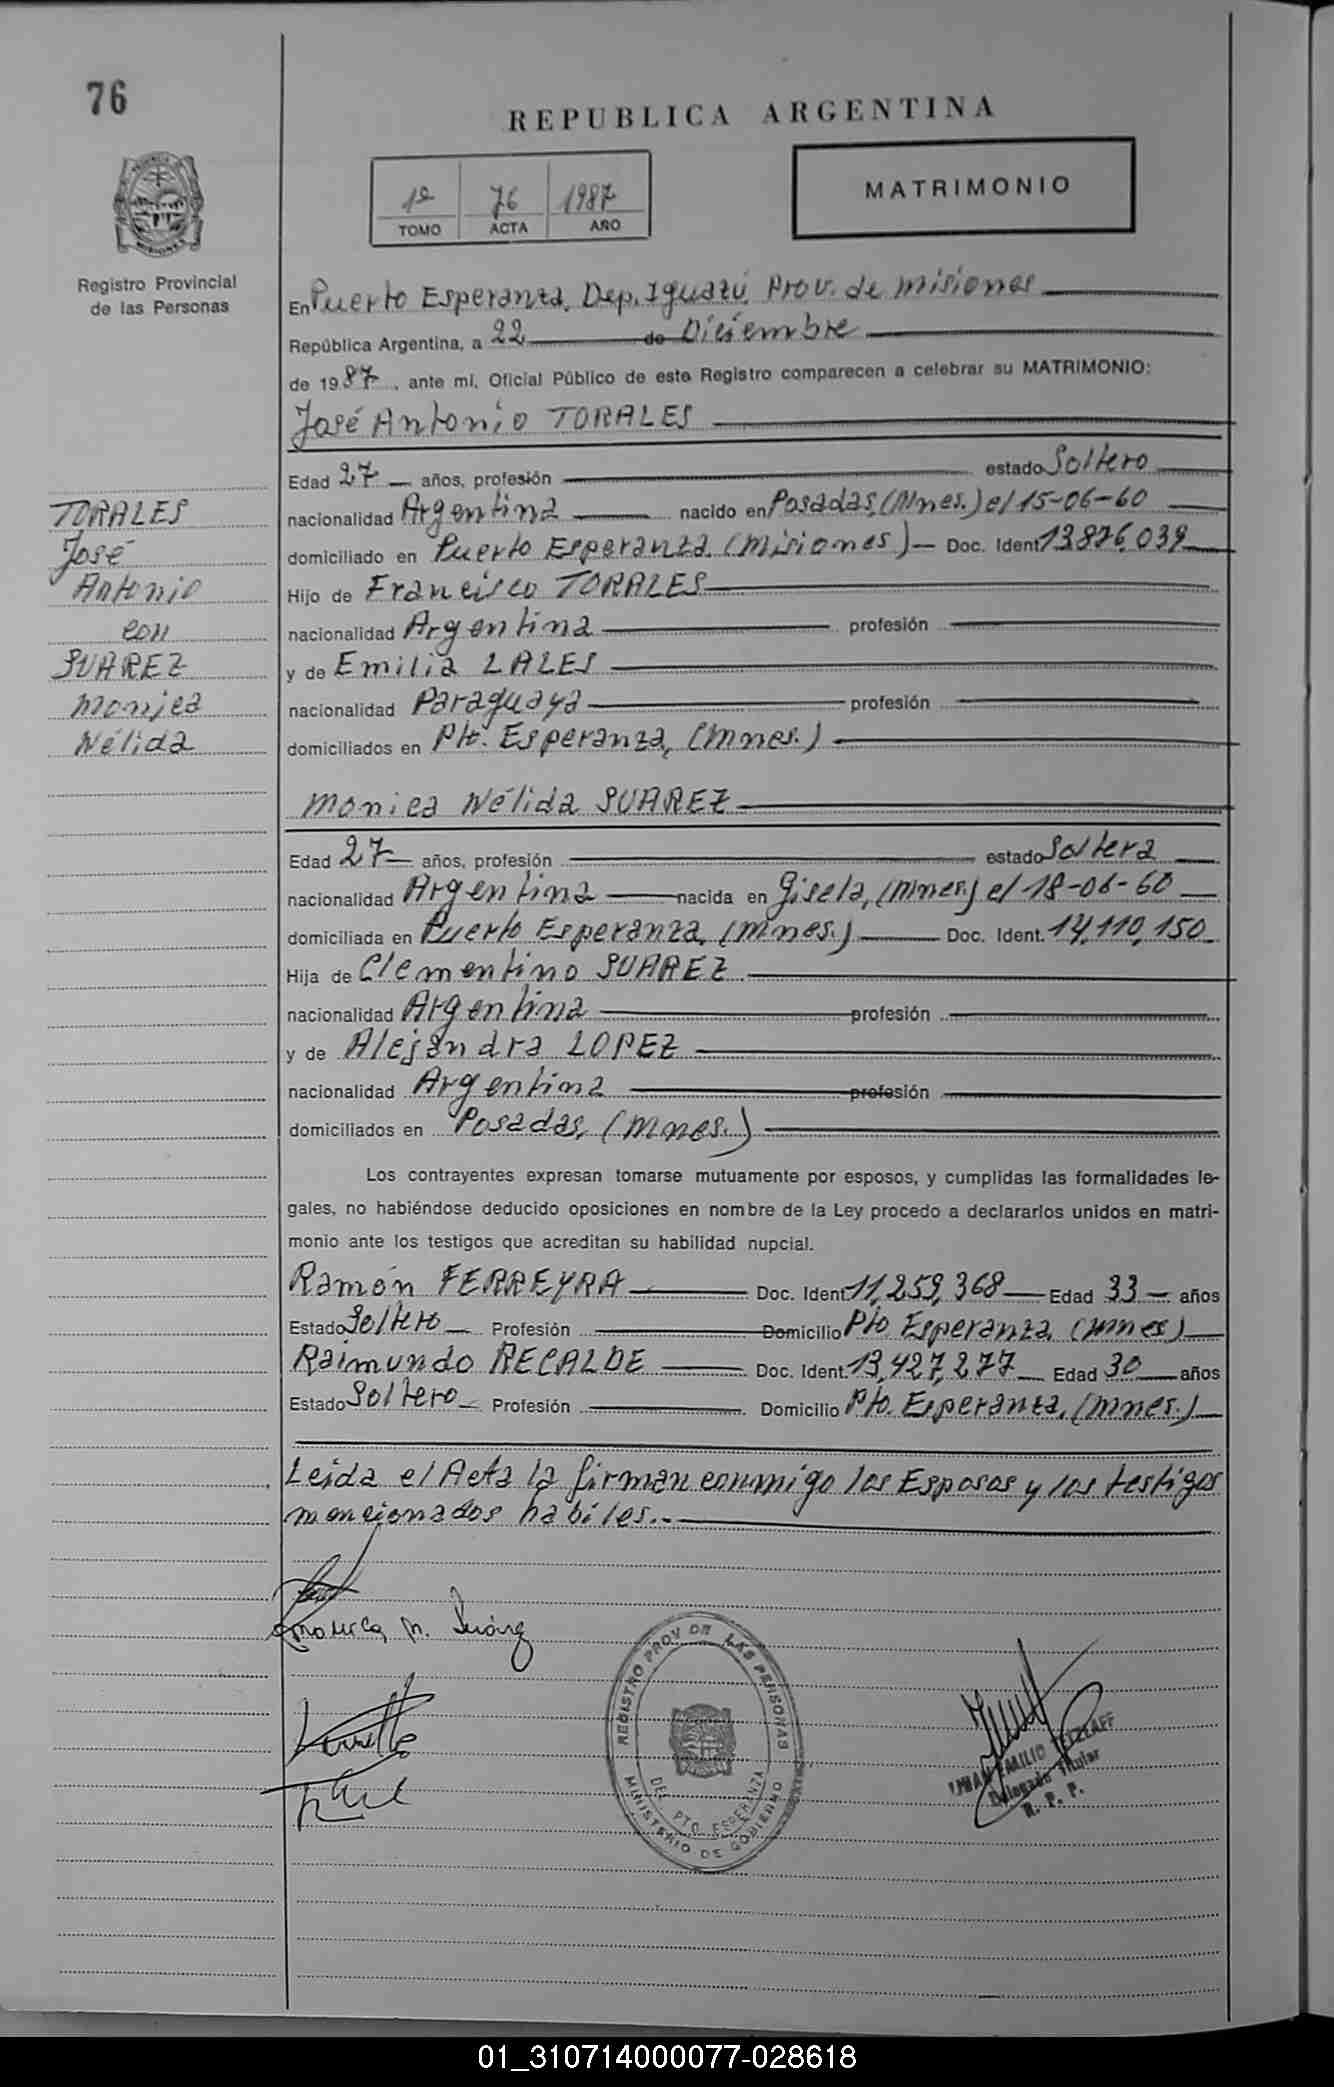 76
REPUBLICA ARGENTINA
1º 76 1987
TOMO ACTA AÑO
MATRIMONIO
Registro Provincial
de las Personas
En Puerto Esperanza, Dep. Iguazú, Prov. de Misiones
República Argentina, a 22 de Diciembre
de 1987, ante mí, Oficial Público de este Registro comparecen a celebrar su MATRIMONIO:
José Antonio TORALES
Edad 27 años, profesión estado Soltero
TORALES
José
Antonio
con
SUAREZ
Monica
Nélida
nacionalidad Argentina nacido en Posadas, (Mnes.) el 15-06-60
domiciliado en Puerto Esperanza, (Misiones) Doc. Ident. 13.876.039
Hijo de Francisco TORALES
nacionalidad Argentina profesión
y de Emilia LALES
nacionalidad Paraguaya profesión
domiciliados en Pto. Esperanza, (Mnes.)
Monica Nélida SUAREZ
Edad 27 años, profesión estado Soltera
nacionalidad Argentina nacida en Gisela, (Mnes.) el 18-06-60
domiciliada en Puerto Esperanza, (Mnes.) Doc. Ident. 14,110,150
Hija de Clementino SUAREZ
nacionalidad Argentina profesión
y de Alejandra LOPEZ
nacionalidad Argentina profesión
domiciliados en Posadas, (Mnes.)
Los contrayentes expresan tomarse mutuamente por esposos, y cumplidas las formalidades le-
gales, no habiéndose deducido oposiciones en nombre de la Ley procedo a declararlos unidos en matri-
monio ante los testigos que acreditan su habilidad nupcial.
Ramón FERREYRA Doc. Ident. 11,259,368 Edad 33 años
Estado Soltero Profesión Domicilio Pto. Esperanza, (Mnes)
Raimundo RECALDE Doc. Ident. 13,427,277 Edad 30 años
Estado Soltero Profesión Domicilio Pto. Esperanza, (Mnes.)
Leida el Acta la firman conmigo los Esposos y los testigos
mencionados habiles.
Monica N. Suárez
REGISTRO PROV DE LAS PERSONAS
DEL PTO. ESPERANZA
MINISTERIO DE GOBIERNO
EMILIO
Delegado Titular
R. P. P.
01_310714000077-028618